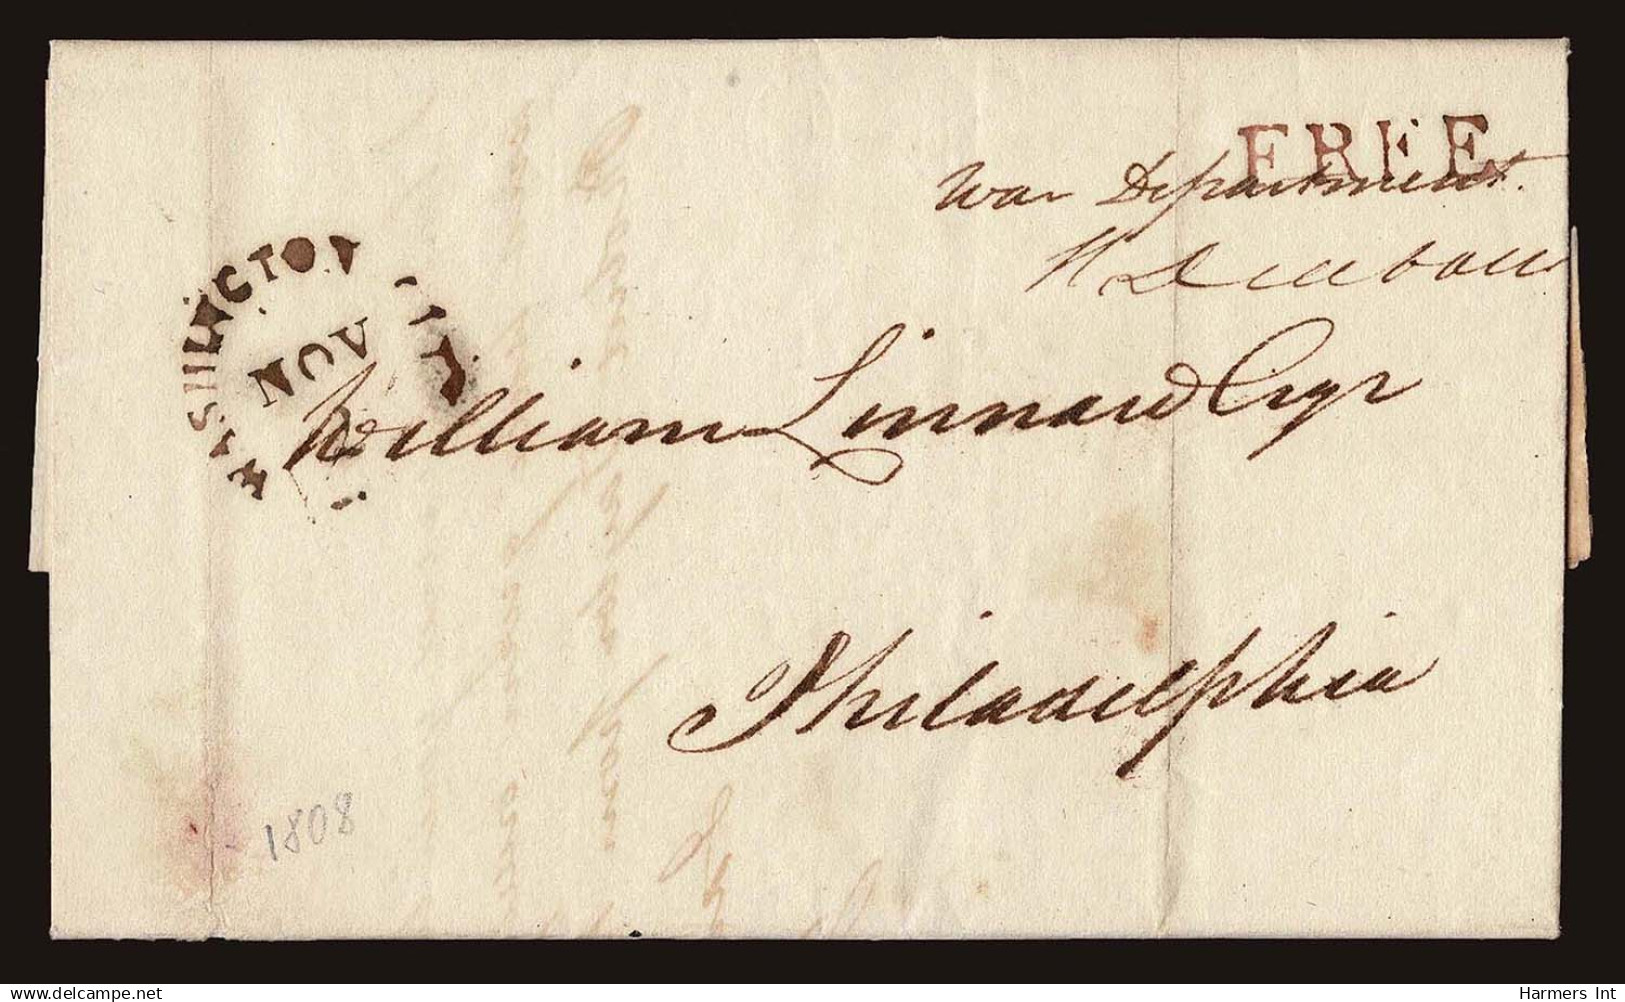 FREE
War Department.
H Dearborn
WASHINGTON CITY
NOV
William Linnard Esqr
Philadelphia
1808
www.delcampe.net
Harmers Int